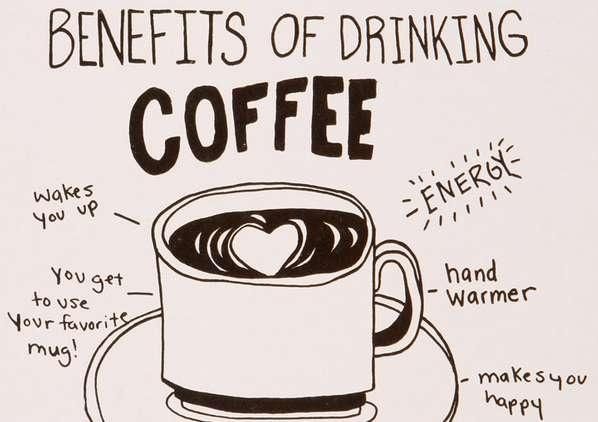 BENEFITS OF DRINKING
COFFEE
wakes
you up
ENERGY
You get
to use
Your favorite
mug!
hand
warmer
makes you
happy